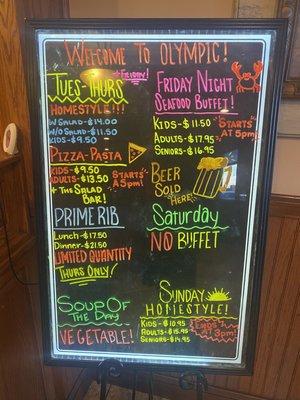 WELCOME TO OLYMPIC!
TUES-THURS
+FRIDAY!
HOMESTYLE!!!
W/SALAD-$14.00
W/O SALAD-$11.50
KIDS-$9.50
PIZZA-PASTA
KIDS-$9.50
ADULTS-$13.50
STARTS
@5PM!
+THE SALAD
BAR!
PRIME RIB
LUNCH-$17.50
DINNER-$21.50
LIMITED QUANTITY
THURS ONLY!
SOUP OF
THE DAY
VEGETABLE!
FRIDAY NIGHT
SEAFOOD BUFFET!
KIDS-$11.50
ADULTS-$17.95
SENIORS-$16.95
STARTS
AT 5PM!
BEER
SOLD
HERE!
SATURDAY
NO BUFFET
SUNDAY
HOMESTYLE!
KIDS-$10.95
ADULTS-$15.95
SENIORS-$14.95
ENDS
AT 3PM!